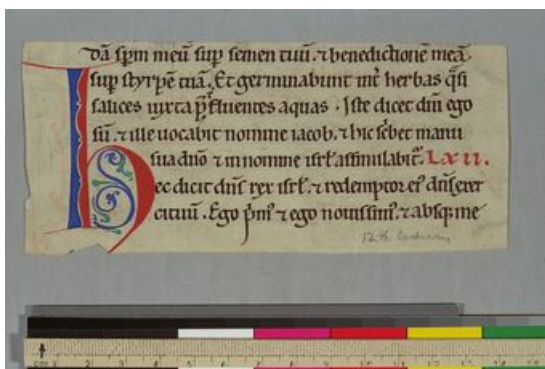 dā spm̄ meū sup semen tuū. ⁊ benedictionē meā
sup styrpē tuā. Et germinabunt int̄ herbas q̄si
salices iuxta p̄fluentes aquas. Iste dicet dn̄i ego
sū. ⁊ ille uocabit nomine iacob. ⁊ hic sc̄bet manu
sua dn̄o ⁊ in nomine isrl̄ assimilabit᷑. LXII.
Hec dicit dn̄s rex isrl̄. ⁊ redemptor eiꝰ dn̄s exer
cituū. Ego p̄mꝰ ⁊ ego nouissimꝰ. ⁊ absq; me
12th Century
cm 1 2 3 4 5 6 7 8 9 10 11 12 13 14 15